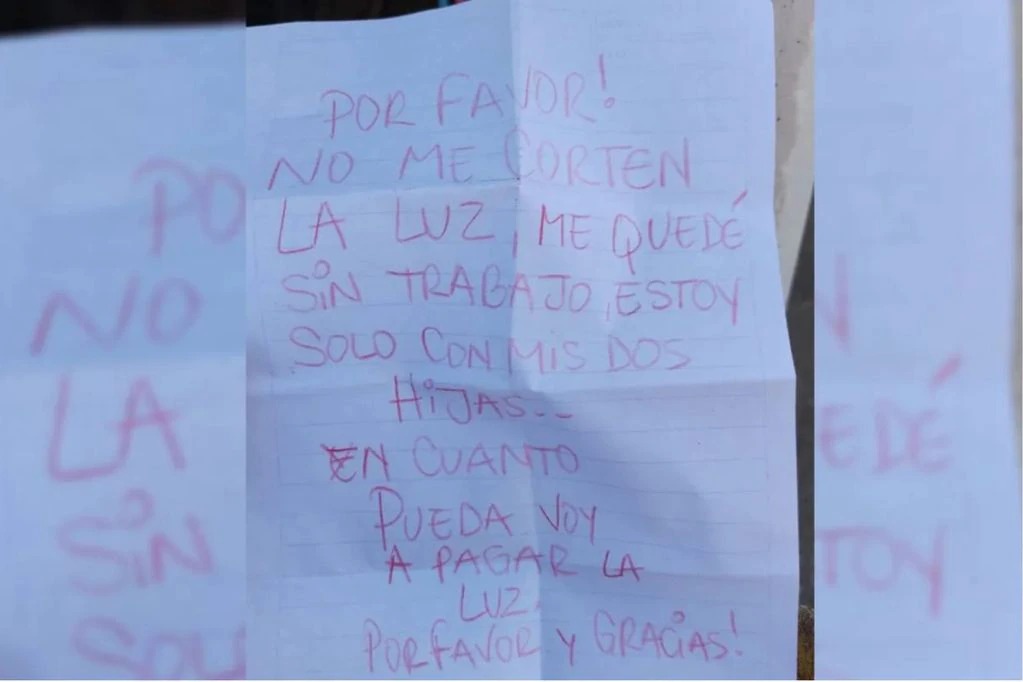 POR FAVOR!
NO ME CORTEN
LA LUZ, ME QUEDÉ
SIN TRABAJO, ESTOY
SOLO CON MIS DOS
HIJAS..
EN CUANTO
PUEDA VOY
A PAGAR LA
LUZ.
POR FAVOR Y GRACIAS!